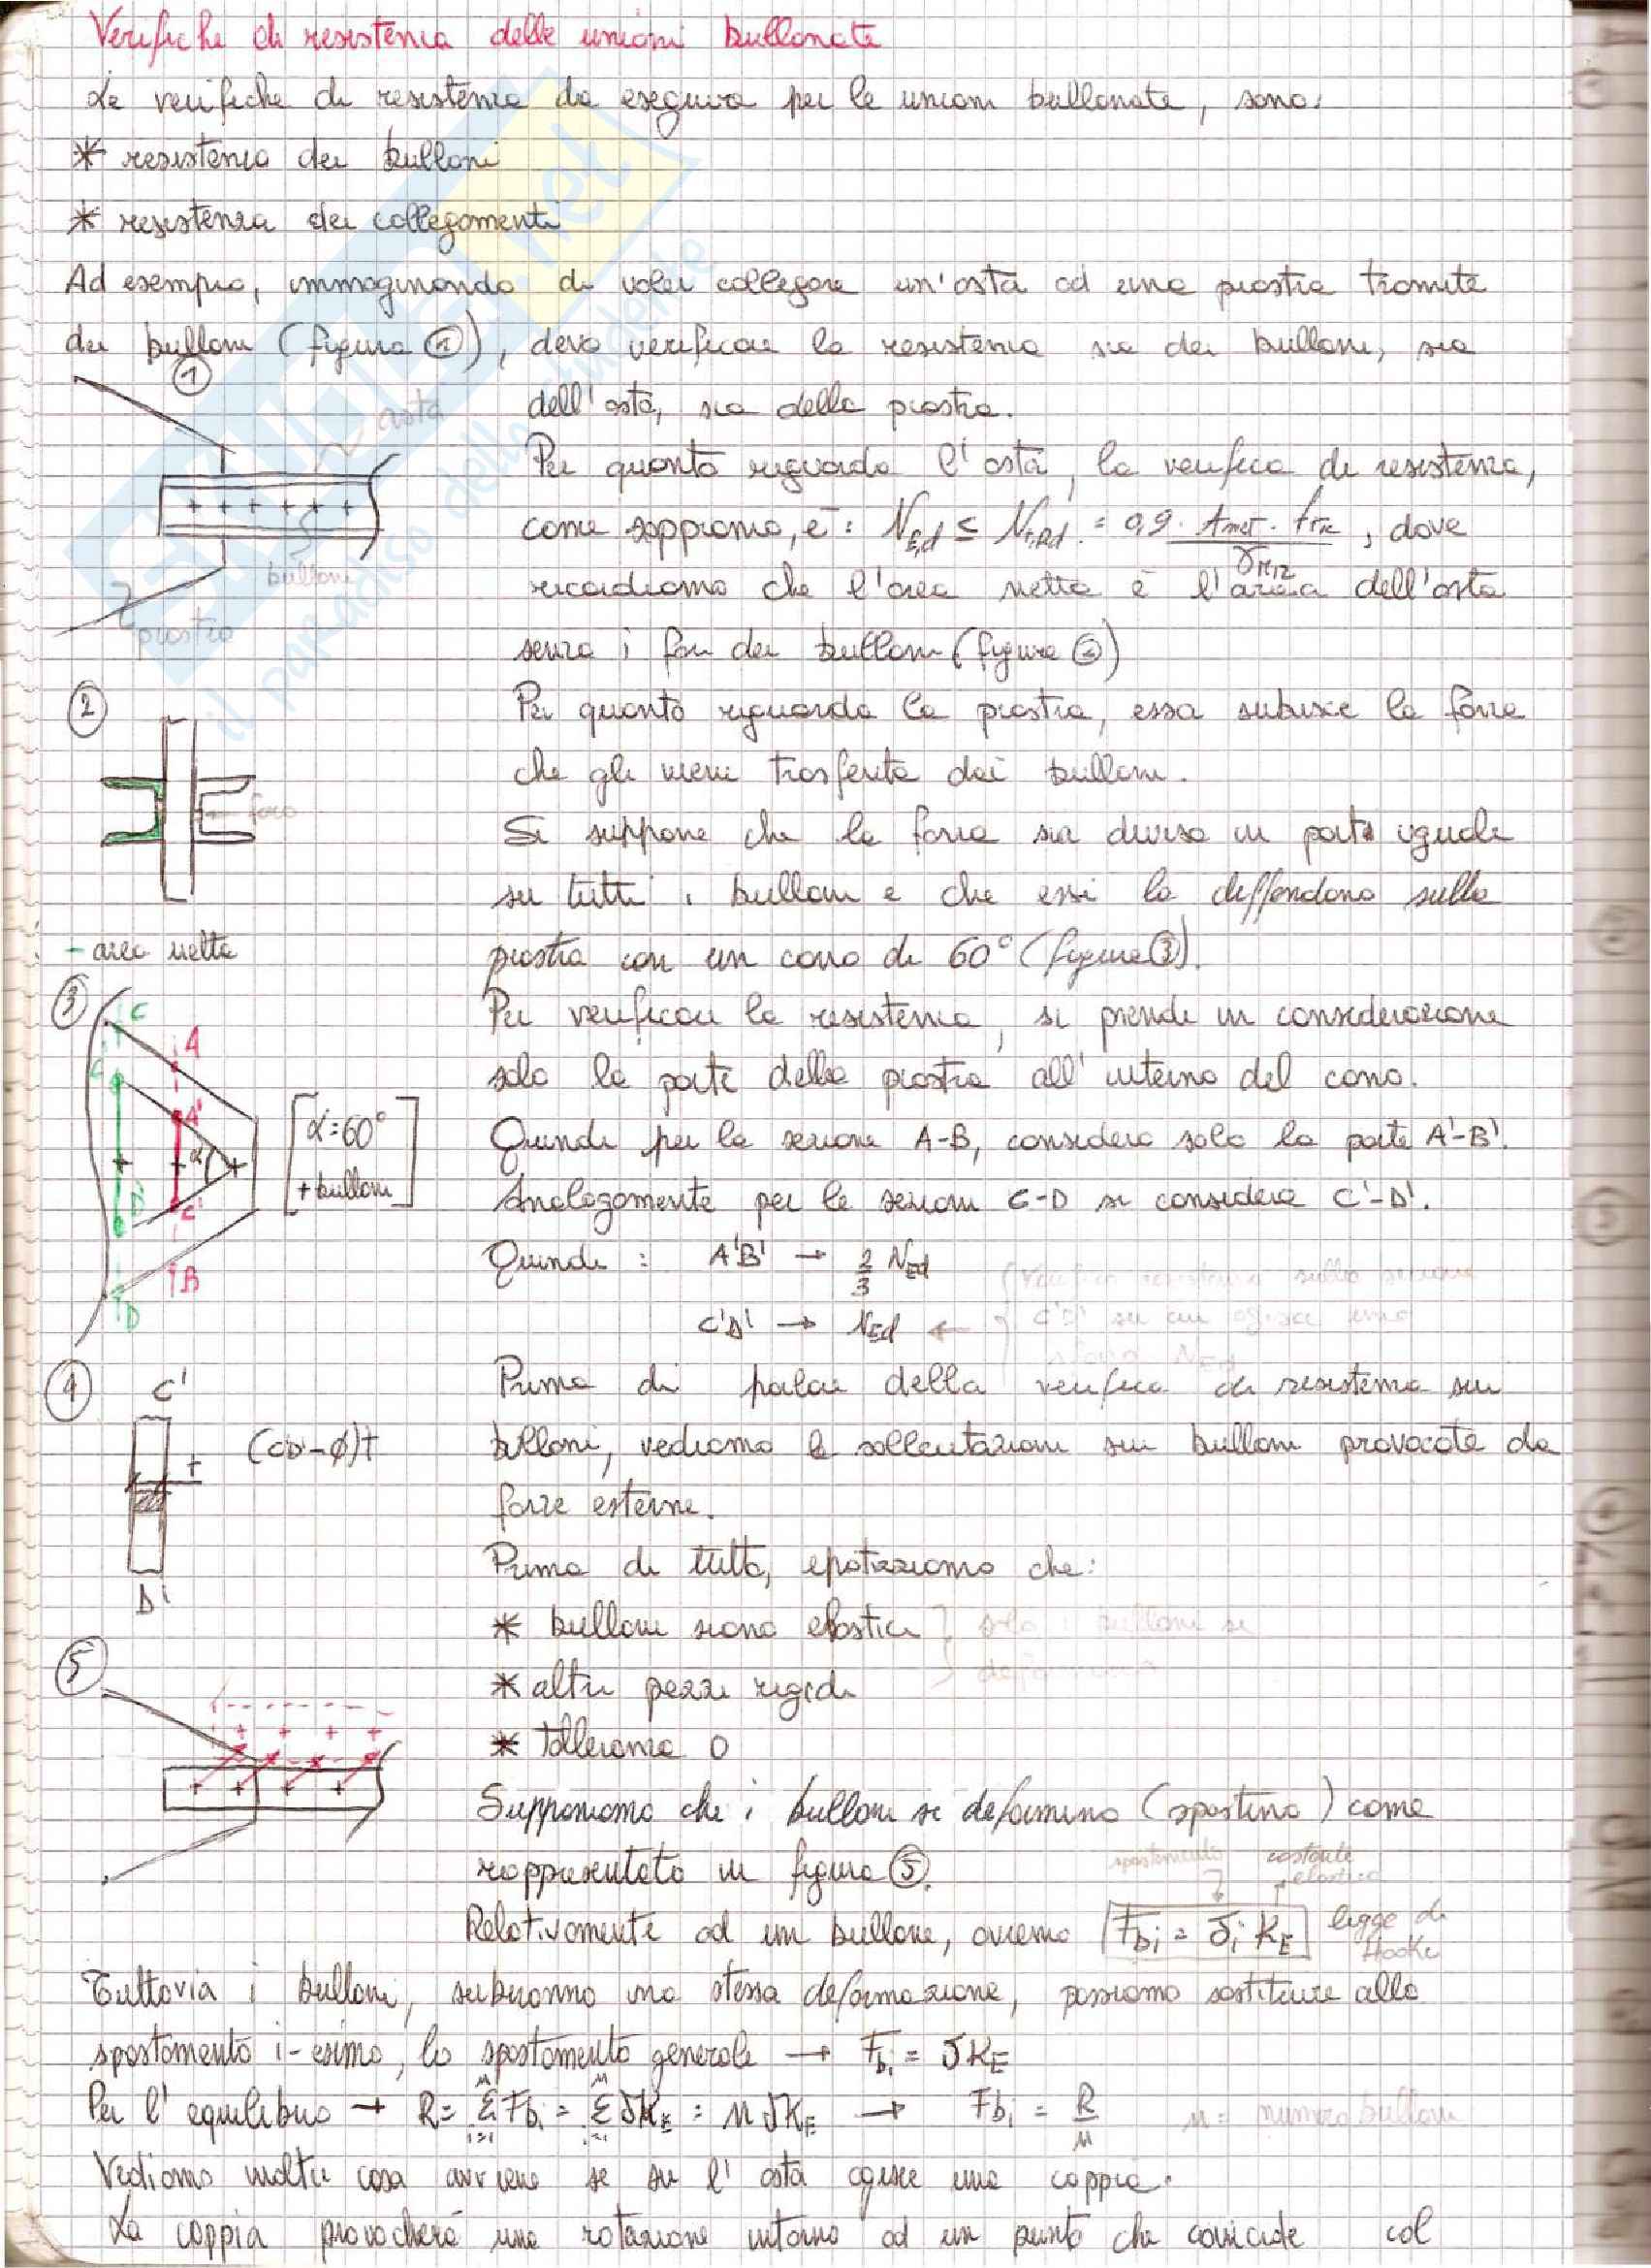 Verifiche di resistenza delle unioni bullonate
Le verifiche di resistenza da eseguire per le unioni bullonate, sono:
* resistenza dei bulloni
* resistenza dei collegamenti
Ad esempio, immaginando di voler collegare un'asta ad una piastra tramite
dei bulloni (figura ①), devo verificare la resistenza sia dei bulloni, sia
dell'asta, sia della piastra.
①
asta
bulloni
piastra
Per quanto riguarda l'asta, la verifica di resistenza,
come sappiamo, è: N_Ed ≤ N_t,Rd = 0,9 · A_net · f_tk / γ_M2, dove
ricordiamo che l'area netta è l'area dell'asta
senza i fori dei bulloni (figura ②)
②
foro
- area netta
Per quanto riguarda la piastra, essa subisce la forza
che gli viene trasferita dai bulloni.
Si suppone che la forza sia divisa in parti uguali
su tutti i bulloni e che essi la diffondono sulla
piastra con un cono di 60° (figura ③).
③
C
A
C'
A'
α
D'
C'
B
D
[α=60°
+ bulloni]
Per verificare la resistenza, si prende in considerazione
solo la parte della piastra all'interno del cono.
Quindi per la sezione A-B, considero solo la parte A'-B'.
Analogamente per la sezione C-D si considera C'-D'.
Quindi: A'B' → 2/3 N_Ed
C'D' → N_Ed ←
Verifico resistenza sulla sezione
C'D' su cui agisce uno
sforzo N_Ed
④
C'
t
D'
Prima di parlare della verifica di resistenza sui
bulloni, vediamo le sollecitazioni sui bulloni provocate da
forze esterne.
Prima di tutto, ipotizziamo che:
* bulloni siano elastici
solo i bulloni si
deformano
* altri pezzi rigidi
* tolleranza 0
⑤
Supponiamo che i bulloni si deformino (spostino) come
rappresentato in figura ⑤.
spostamento
costante
elastica
Relativamente ad un bullone, avremo F_bi = δ_i K_E legge di
Hooke
Tuttavia i bulloni, subiranno una stessa deformazione, possiamo sostituire allo
spostamento i-esimo, lo spostamento generale → F_bi = δK_E
Per l'equilibrio → R = Σ F_bi = Σ δK_E = n δK_E → F_bi = R/n n = numero bulloni
Vediamo inoltre cosa avviene se su l'asta agisce una coppia.
La coppia provocherà una rotazione intorno ad un punto che coincide col